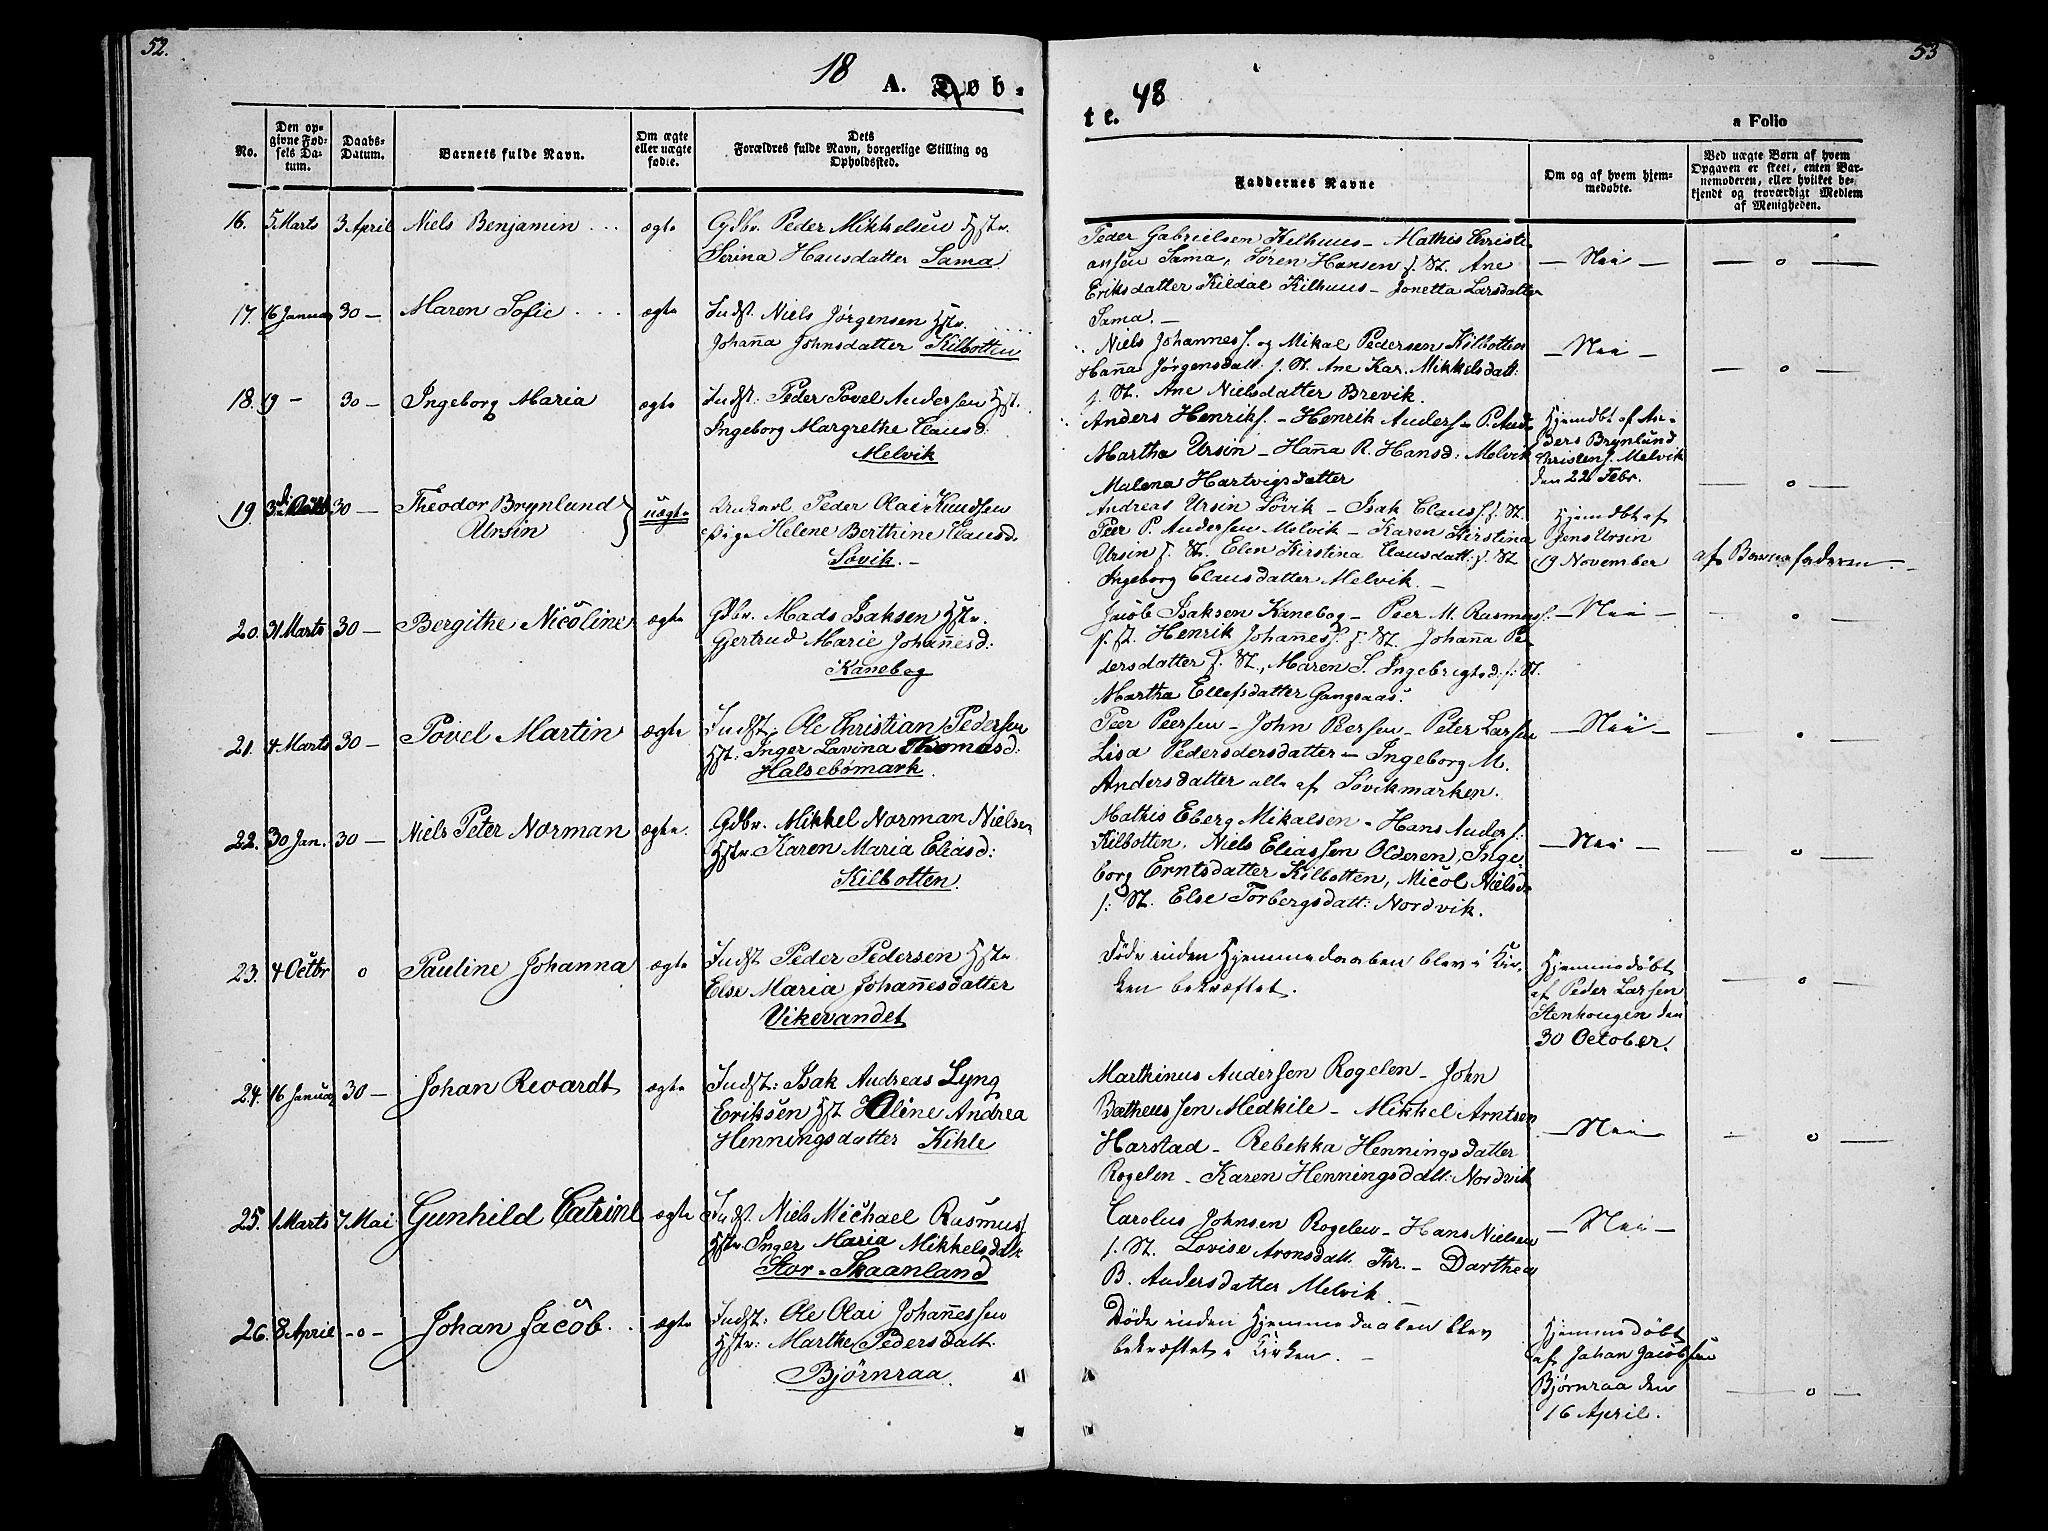 52.
53
18 A. Døb-
te. 48
a Folio
No.
Den op-
givne Fød-
sels Da-
tum.
Daabs-
Datum.
Barnets fulde Navn.
Om ægte
eller uægte
fødte.
Dets
Forældres fulde Navn, borgerlige Stilling og
Opholdssted.
Faddernes Navne
Om og af hvem hjem-
medøbte.
Ved uægte Børn af hvem
Opgaven er skeet, enten Bar-
nemoderen, eller hvilket be-
kjendt og troværdigt Medlem
af Menigheden.
16. 5 Marts 3 April Niels Benjamin ægte
Gdbr. Peder Mikkelsen Hstr.
Serina Hansdatter Sama
Peder Gabrielsen Kilhuus - Mathis Christi-
ansen Sama, Søren Hansen f. St. Ane
Eriksdatter Kildal Kilhuus - Jonetta Larsdatter
Sama. -
- Nei -
- o -
17. 16 Januar 30 - Maren Sofie ægte
Indst. Niels Jørgensen Hstr.
Johanna Johnsdatter Kilbotten
Niels Johannes f. og Mikal Pedersen Kilbotten
Hanna Jørgensdatt. f. St. Ane Kar. Mikkelsdatt:
f. St. Ane Nielsdatter Brevik.
- Nei -
- o -
18. 19 - 30 - Ingeborg Maria ægte
Indst: Peder Povel Andersen Hst.
Ingeborg Margrethe Clausd:
Melvik
Anders Henriks. - Henrik Anders - P. And
Martha Ursin - Hanna R. Hansd: Melvik
Malena Hartvigsdatter
Hjemdbt af An-
ders Brynlund
Christens. Melvik
den 22 Febr.
- o -
19. 30 - Theodor Brynlund
Ursin
uægte
Peder Olai Knudsen
Pige Helene Berthine Clausd.
Søvik. -
Andreas Ursin Søvik - Isak Clauss f. St.
Peer P. Andersen Melvik - Karen Kirstina
Ursin f. St. Elen Kirstina Clausdatt: f. St
Ingeborg Clausdatter Melvik. -
Hjemdbt af
Jens Ursin
19 November
af Barnefaderen.
20. 31 Marts 30 - Bergithe Nicoline ægte
Gdbr. Mads Isaksen Hstr.
Gjertrud Marie Johannesd:
Kanebog
Jacob Isaksen Kanebog - Peer M. Rasmuss.
f. St. Henrik Johanness. f. St. Johanna Pe-
dersdatter f. St., Maren S. Ingebrigtsd. f: St.
Martha Ellefsdatter Gangsaas.
- Nei -
- o -
21. 4 Marts 30 - Povel Martin ægte
Indst. Ole Christian Pedersen
Hst: Inger Lavina Thomasd:
Halsebømark.
Peer Peersen - John Peersen - Peter Larsen
Lisa Pedersdersdatter - Ingeborg M.
Andersdatter alle af Søvikmarken.
- Nei -
- o -
22. 30 Jan. 30 - Niels Peter Norman ægte.
Gdbr. Mikkel Norman Nielsen
Hstr Karen Maria Eliasd:
Kilbotten.
Mathis Eberg Mikalsen - Hans Anders:
Kilbotten, Niels Eliassen Olderen, Inge-
borg Erntsdatter Kilbotten, Nicol Nielsd.
f: St. Else Torbergsdatt: Nordvik.
- Nei -
- o -
23. 4 Octbr o Pauline Johanna ægte
Indst Peder Pedersen Hstr
Else Maria Johannesdatter
Vikevandet
Døde inden Hjemmedaaben blev i Kir-
ken bekræftet.
Hjemmedøbt
af Peder Larsen
Stenhougen den
30 October.
- o -
24. 16 Januar 30 - Johan Rewardt ægte
Indst: Isak Andreas Lyng
Eriksen Hst Oline Andrea
Henningsdatter Kihle
Marthinus Andersen Rogelen - John
Batheussen Medkile - Mikkel Arntsen
Harstad - Rebekka Henningsdatter
Rogelen - Karen Henningsdatt: Nordvik
- Nei -
- o -
25. 1 Marts 7 Mai Gunhild Catrine ægte
Indst. Niels Michael Rasmus
Hstr Inger Maria Mikkelsdatt
Stor-Skaanland
Carolus Johnsen Rogelen - Hans Nielsen
f. St. Lovise Aronsdatt. Thr. - Darthea
B. Andersdatter Melvik. -
- Nei -
26. 8 April -o- Johan Jacob. ægte
Indst: Ole Olai Johannessen
Hstr: Marthe Pedersdatt:
Bjørnraa.
Døde inden Hjemmedaaben blev
bekræftet i Kirken. -
Hjemmedøbt
af Johan Jacobsen
Bjørnraa den
16 April.
- o -